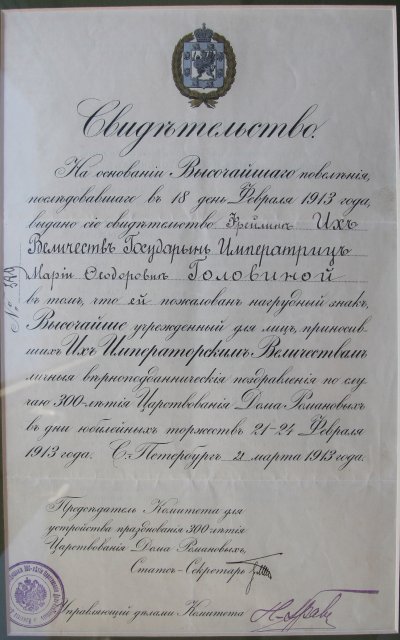 Свидѣтельство.
На основаніи Высочайшаго повелѣнія,
послѣдовавшаго въ 18 день Февраля 1913 года,
выдано сіе свидѣтельство Фрейлинѣ Ихъ
Величествъ Государынь Императрицъ
Маріи Ѳеодоровнѣ Головиной
№
въ томъ, что ей пожалованъ нагрудный знакъ,
Высочайше учрежденный для лицъ, приносив-
шихъ Ихъ Императорскимъ Величествамъ
личныя вѣрноподданническія поздравленія по слу-
чаю 300-лѣтія Царствованія Дома Романовыхъ
въ дни юбилейныхъ торжествъ 21-24 Февраля
1913 года. С.-Петербургъ 21 марта 1913 года.
Предсѣдатель Комитета для
устройства празднованія 300-лѣтія
Царствованія Дома Романовыхъ,
Статсъ-Секретарь
Управляющій дѣлами Комитета